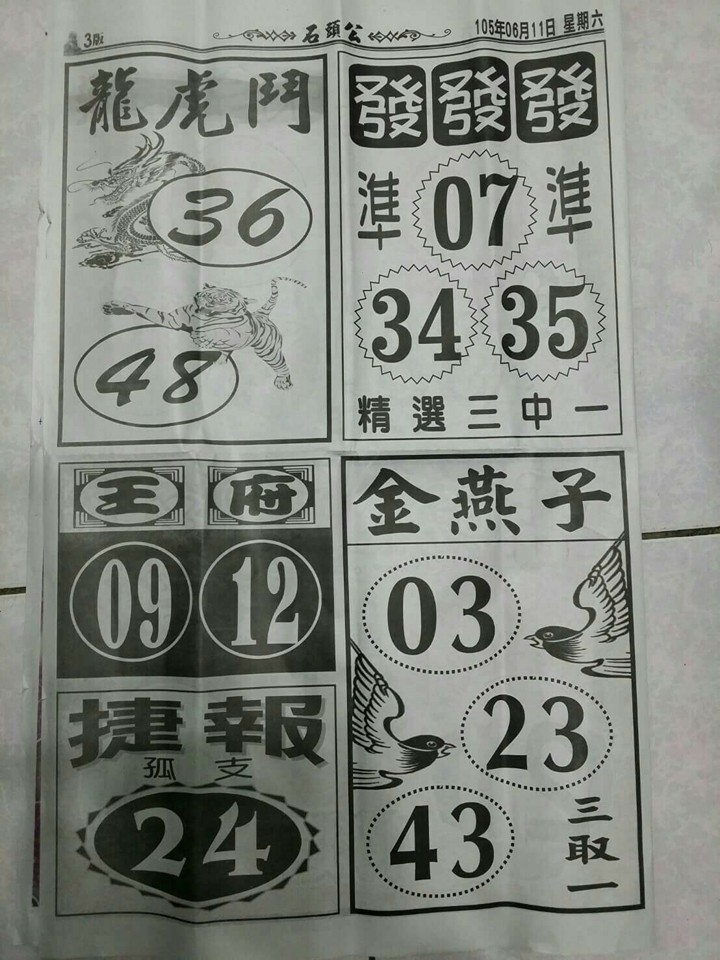 3版
石頭公
105年06月11日 星期六
龍虎鬥
36
48
發發發
準 07 準
34 35
精選三中一
王府
09 12
捷報
孤支
24
金燕子
03
23
43
三取一